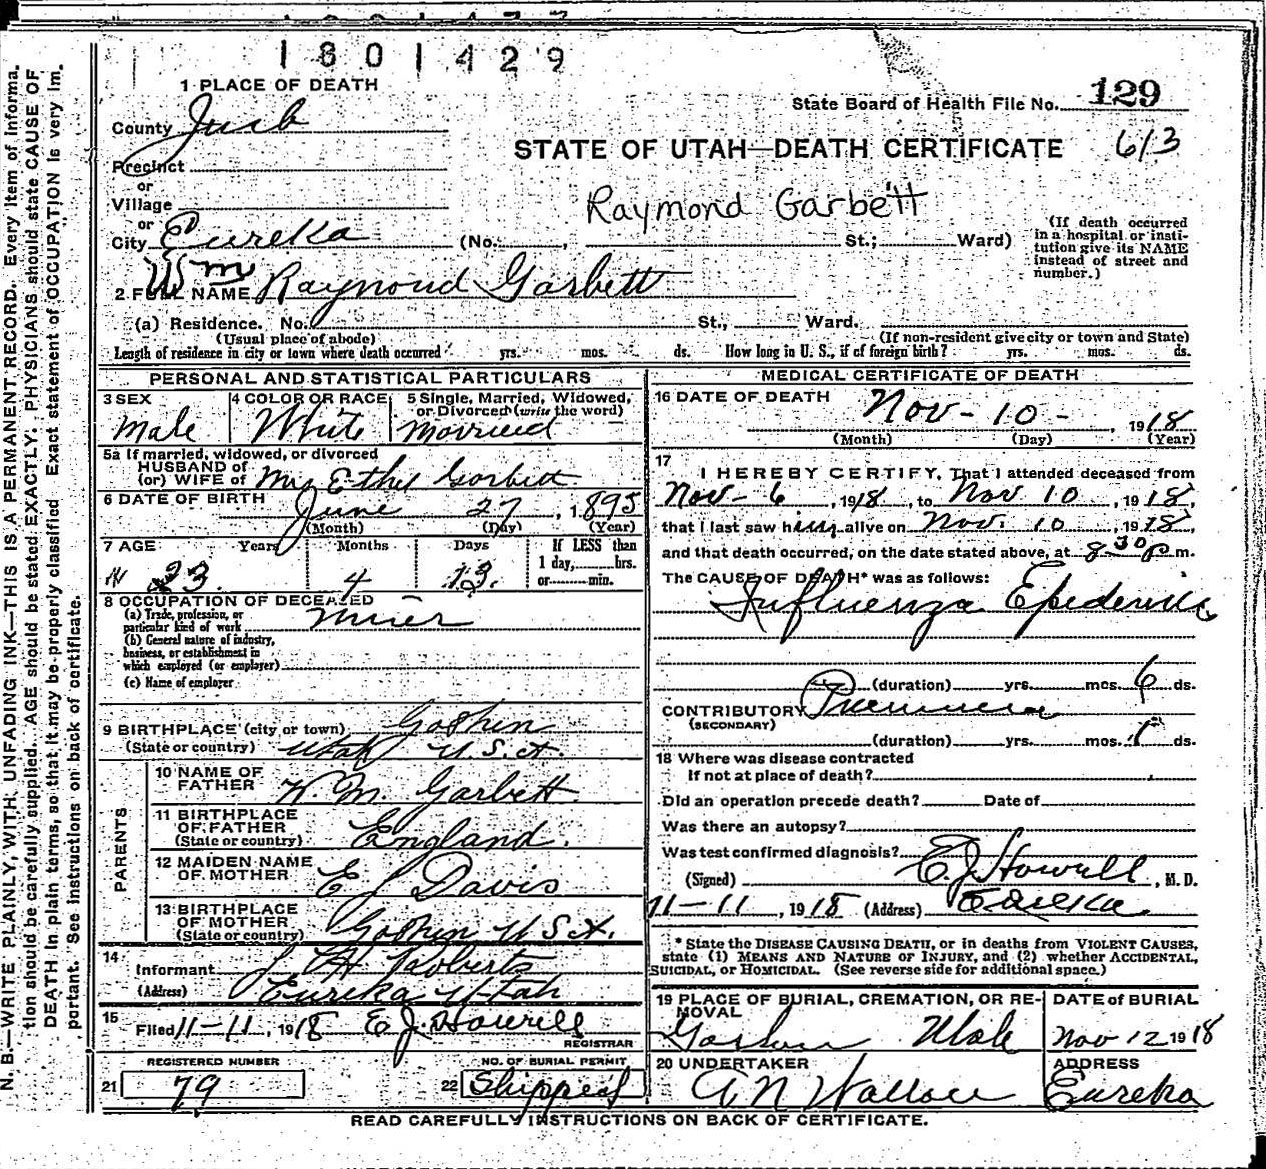 1801429
1 PLACE OF DEATH
State Board of Health File No. 129
County Juab
STATE OF UTAH—DEATH CERTIFICATE 613
Precinct
or
Village
Raymond Garbett
or
City Eureka (No. , St.; Ward)
(If death occurred
in a hospital or insti-
tution give its NAME
instead of street and
number.)
2 FULL NAME Wm Raymond Garbett
(a) Residence. No. St., Ward.
(Usual place of abode) (If non-resident give city or town and State)
Length of residence in city or town where death occurred yrs. mos. ds. How long in U. S., if of foreign birth? yrs. mos. ds.
PERSONAL AND STATISTICAL PARTICULARS
3 SEX Male
4 COLOR OR RACE White
5 Single, Married, Widowed,
or Divorced (write the word)
Married
5a If married, widowed, or divorced
HUSBAND of
(or) WIFE of Mrs Ethel Garbett
6 DATE OF BIRTH June 27, 1895
(Month) (Day) (Year)
7 AGE Years Months Days If LESS than
1 day, hrs.
or min.
23 4 13
8 OCCUPATION OF DECEASED
(a) Trade, profession, or
particular kind of work Miner
(b) General nature of industry,
business, or establishment in
which employed (or employer)
(c) Name of employer
9 BIRTHPLACE (city or town) Goshen
(State or country) Utah U.S.A.
PARENTS
10 NAME OF
FATHER W. M. Garbett
11 BIRTHPLACE
OF FATHER
(State or country) England.
12 MAIDEN NAME
OF MOTHER E J Davis
13 BIRTHPLACE
OF MOTHER
(State or country) Goshen U S A.
14
Informant J H Roberts
(Address) Eureka Utah
15
Filed 11-11, 1918 E J Howell
REGISTRAR
REGISTERED NUMBER
21 79
NO. OF BURIAL PERMIT
22 Shipped
MEDICAL CERTIFICATE OF DEATH
16 DATE OF DEATH Nov-10-, 1918
(Month) (Day) (Year)
17
I HEREBY CERTIFY, That I attended deceased from
Nov-6, 1918, to Nov 10, 1918,
that I last saw him alive on Nov. 10, 1918,
and that death occurred, on the date stated above, at 8 30 p m.
The CAUSE OF DEATH* was as follows:
Influenza Epidemic
(duration) yrs. mos. 6 ds.
CONTRIBUTORY Pneumonia
(SECONDARY)
(duration) yrs. mos. ds.
18 Where was disease contracted
If not at place of death?
Did an operation precede death? Date of
Was there an autopsy?
Was test confirmed diagnosis?
(Signed) E. J. Howell, M. D.
11-11, 1918 (Address) Eureka
* State the DISEASE CAUSING DEATH, or in deaths from VIOLENT CAUSES,
state (1) MEANS AND NATURE OF INJURY, and (2) whether ACCIDENTAL,
SUICIDAL, or HOMICIDAL. (See reverse side for additional space.)
19 PLACE OF BURIAL, CREMATION, OR RE-
MOVAL
Goshen Utah
DATE of BURIAL
Nov 12 1918
20 UNDERTAKER
A N Wallace
ADDRESS
Eureka
READ CAREFULLY INSTRUCTIONS ON BACK OF CERTIFICATE.
N. B.—WRITE PLAINLY, WITH UNFADING INK—THIS IS A PERMANENT RECORD. Every item of informa-
tion should be carefully supplied. AGE should be stated EXACTLY. PHYSICIANS should state CAUSE OF
DEATH in plain terms, so that it may be properly classified. Exact statement of OCCUPATION is very im-
portant. See instructions on back of certificate.